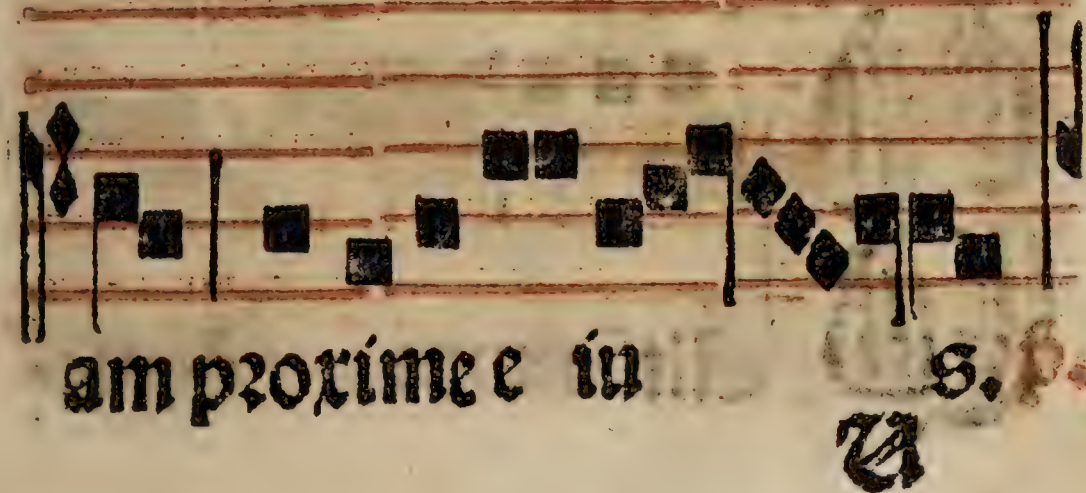 am proxime e in s. p.
A